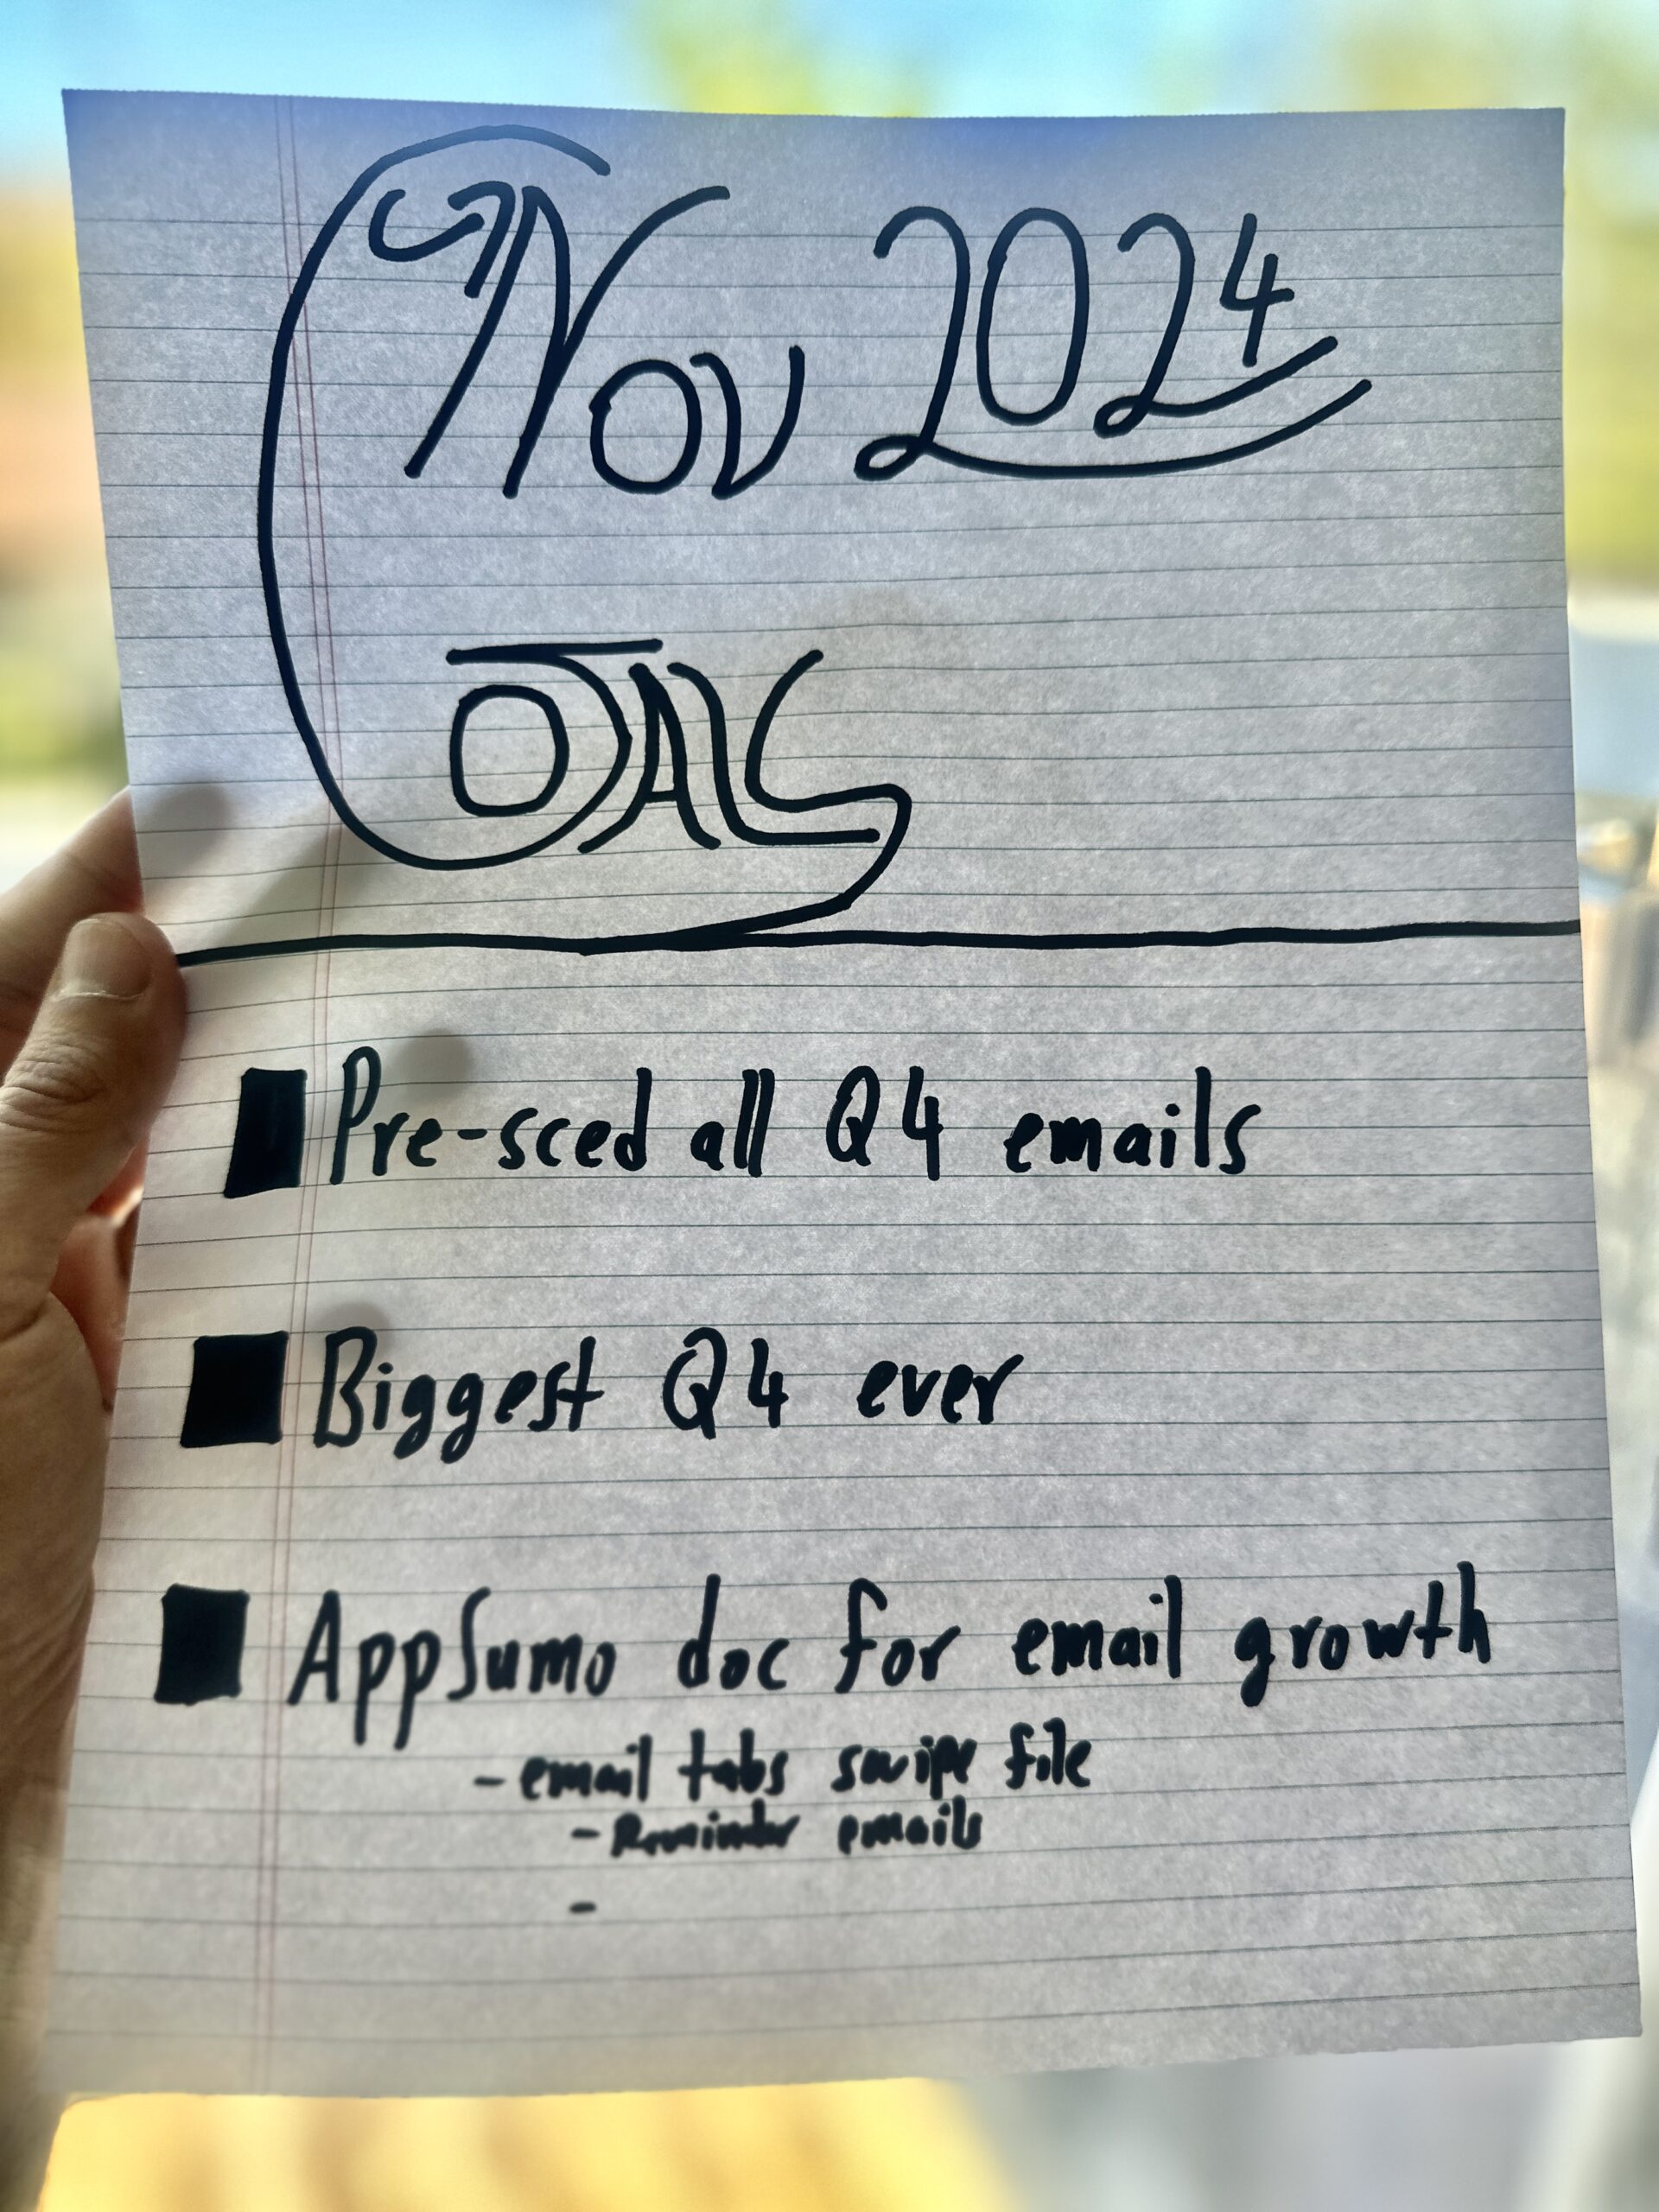 Nov 2024
GOALS
Pre-sced all Q4 emails
Biggest Q4 ever
AppSumo doc for email growth
- email tabs swipe file
- Reminder emails
-